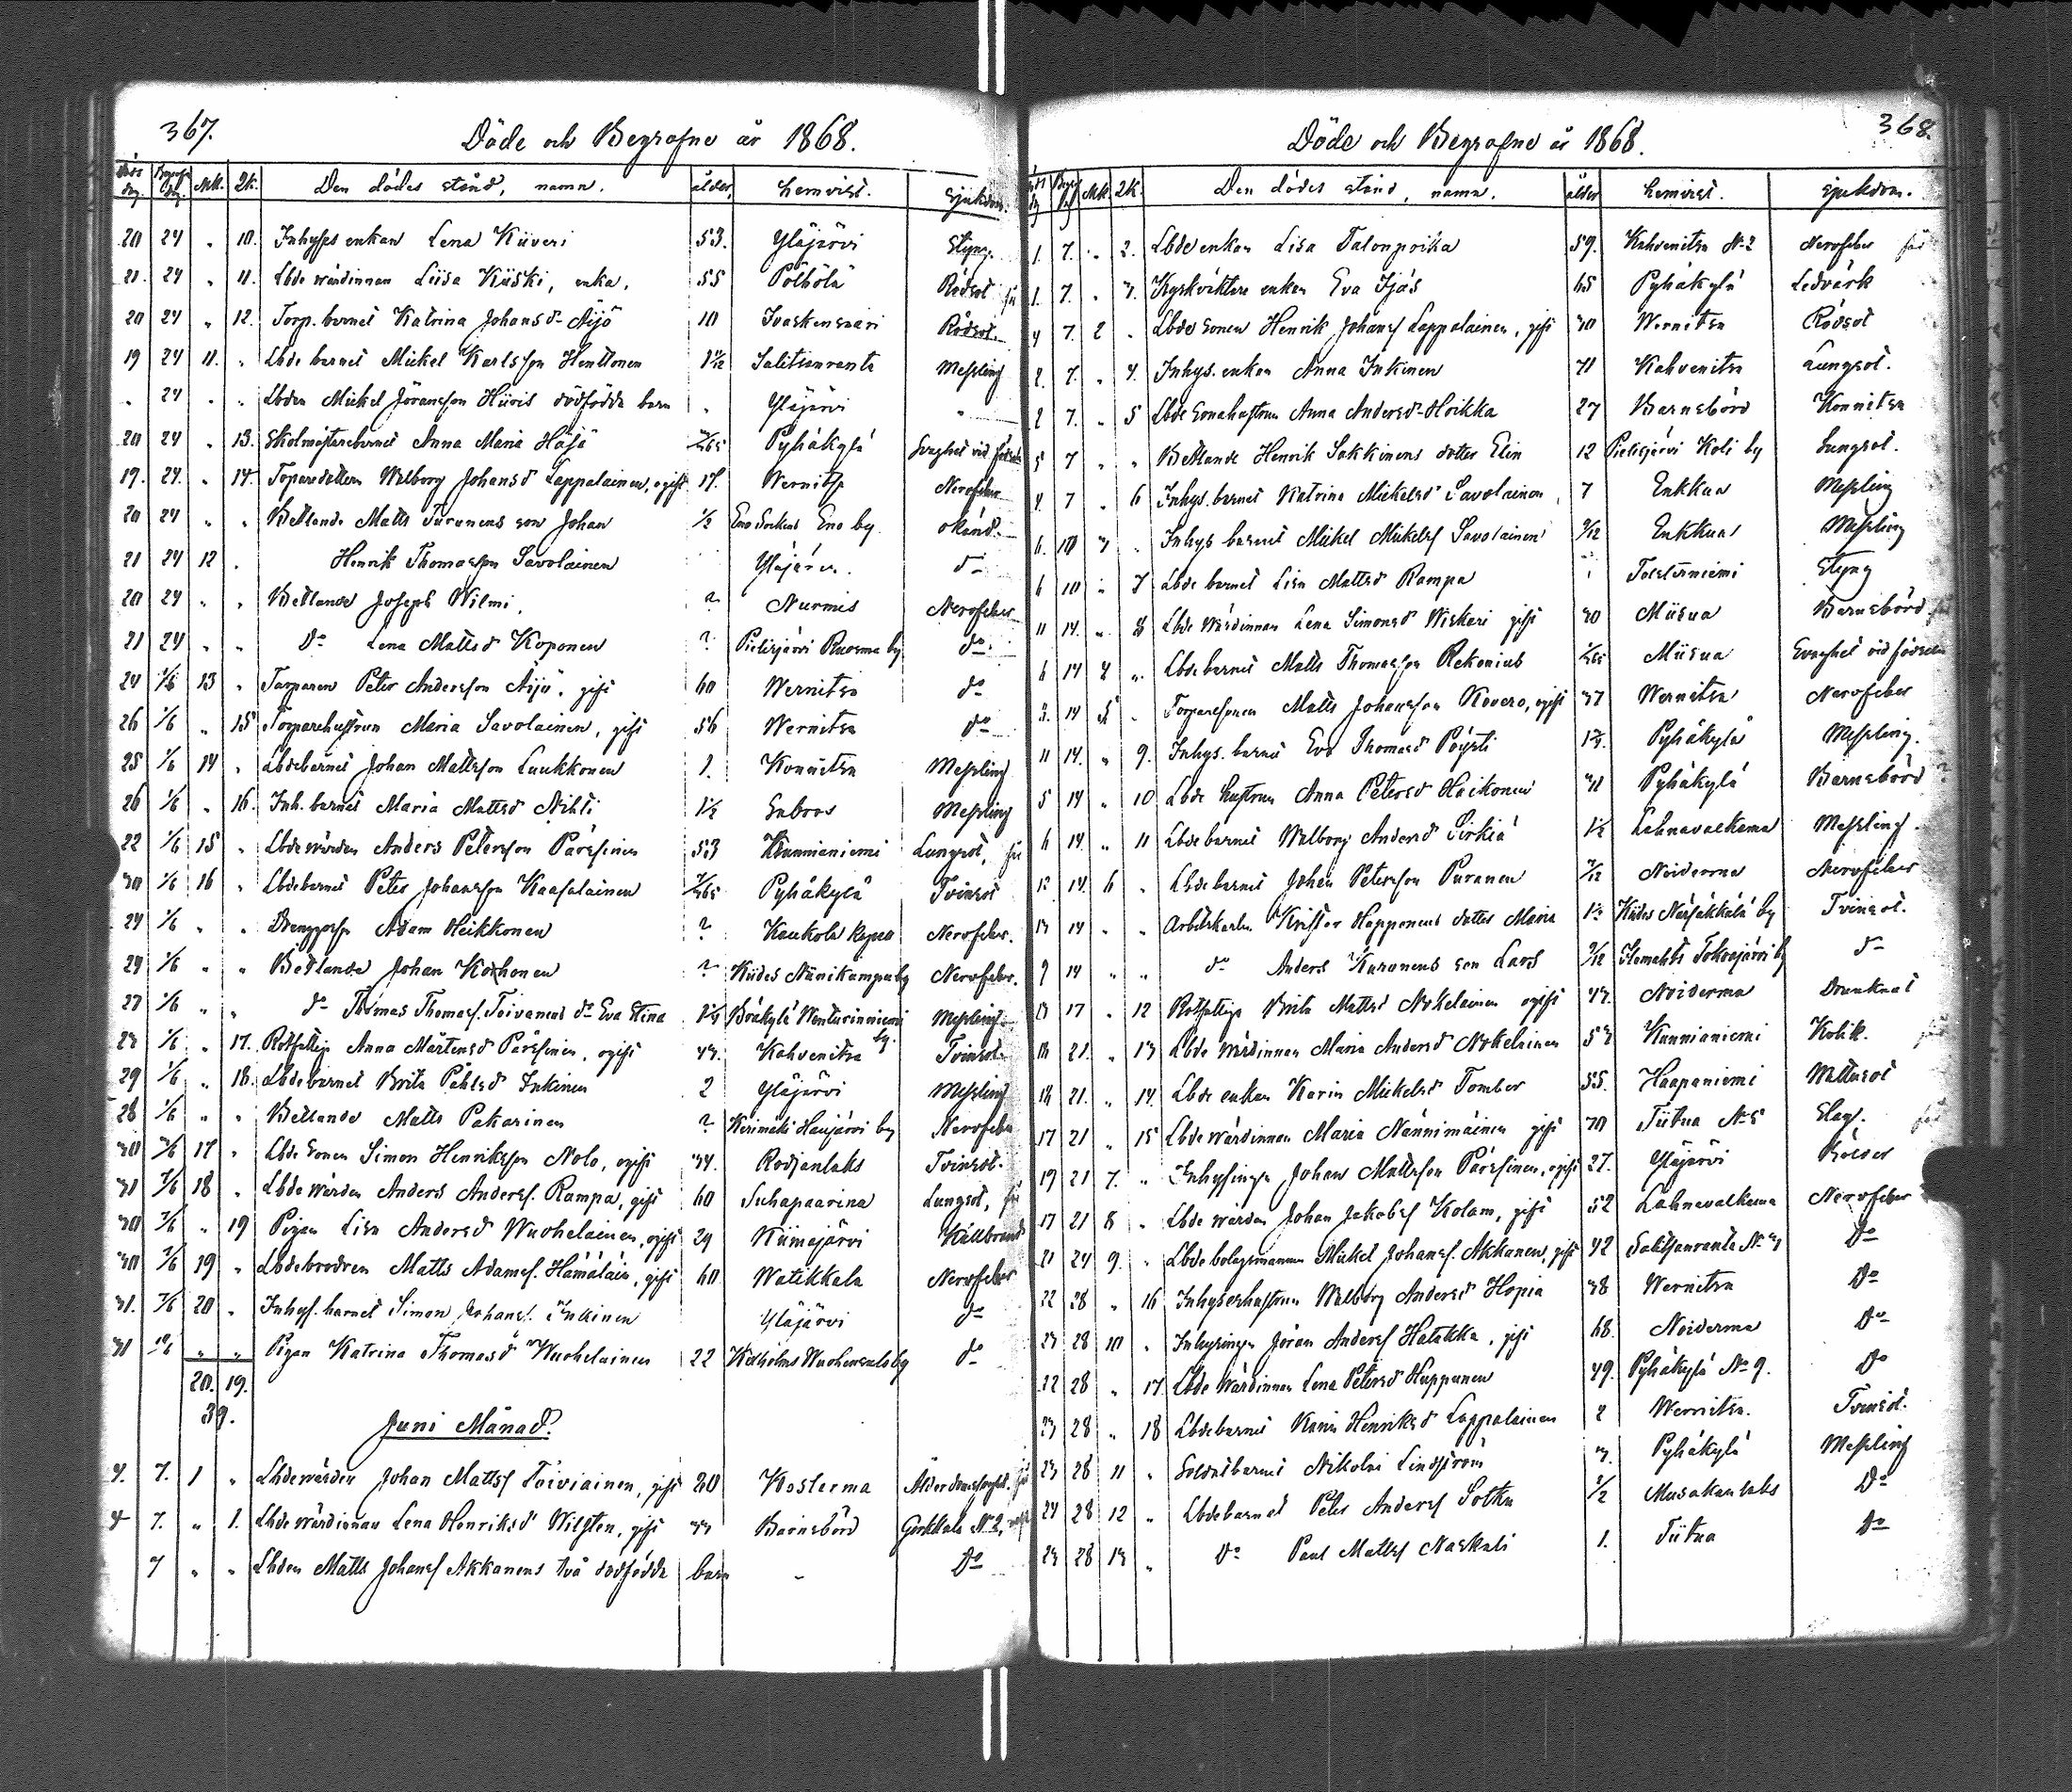 367.
Döde och Begrafne år 1868.
Döds dag. Begrafn. dag. Mk. Qk. Den dödes stånd, namn. ålder. hemvist. Sjukdom.
20 24 „ 10. Inhyses enkan Lena Kiiveri 53. Yläjärvi Styng.
21. 24 „ 11. Lbde värdinnan Liisa Kiiski, enka. 55 Pölhölä Rödsot
20 24 „ 12. Torp. barnet Katrina Johansdr Äijö 10 Ivaskensaari Rödsot.
19 24 11. „ Lbde barnet Mickel Karlsson Henttonen 1 Salitsanranta Messling
„ 24 „ „ Lbden Mickel Jöransson Hiiris dödfödda barn „ Yläjärvi „
20 24 „ 13. Skolmästarebarnet Anna Maria Höjö Pyhäkylä Svaghet vid födseln
19. 24. „ 14. Torparedottern Walborg Johansd Lappalainen, ogift 17. Wernitsa Nervfeber
20 24 „ „ Betlande Matts Turunens son Johan 1/2 Eno Socken Eno by. okänd.
21 24 12 . Henrik Thomasson Savolainen Yläjärvi. do
20 24 „ „ Betlande Joseph Wilmi. ? Nurmis Nervfeber
21 24 „ „ Do Lena Mattsd Koponen ? Pielisjärvi Ruosma by do
24 1/6 13 „ Torparen Peter Andersson Äijö. gift 60 Wernitsa do
26 1/6 „ 15 Torparehustrun Maria Savolainen, gift 56 Wernitsa do
25 1/6 14 „ Lbdebarnet Johan Mattsson Luukkonen 1. Konnitsa Messling
26 1/6 „ 16. Inh. barnet Maria Mattsd Nihti 1½ Saroos Messling
22 1/6 15 „ Lbdevärden Anders Petersson Pärssinen 53 Kunnianiemi Lungsot,
30 1/6 16 „ Lbdebarnet Peter Johansson Kaasalainen Pyhäkylä Tvinsot
24 1/6 „ „ Drengen Adam Heikkonen ? Kaukola Nervfeber.
24 1/6 „ „ Betlande Johan Korhonen ? Kides Niinikumpu by Nervfeber.
27 1/6 „ „ do Thomas Thomass. Toivanens dr Eva Stina Bräkylä Wenturinniemi by. Messling.
23 1/6 „ 17. Rotfattig Anna Mårtensd Pärssinen, ogift 43. Kahvenitsa Tvinsot.
29 1/6 „ 18. Lbdebarnet Brita Påhlsd Inkinen 2 Yläjärvi Messling
28 1/6 „ „ Betlande Matts Pakarinen ? Kerimäki Haujärvi by Nervfeber
30 7/6 17 „ Lbde Sonen Simon Henriksson Nolo, ogift 34. Rodjanlaks Tvinsot.
31 7/6 18 „ Lbde värden Anders Anderss. Rampa, gift 60 Suhapaarina Lungsot,
30 7/6 „ 19 Pigan Lisa Andersd Wuohelainen, ogift 24 Kiimajärvi Kallbrand
30 7/6 19 „ Lbdebrodren Matts Adamss. Hämäläin, gift 60 Watikkala Nervfeber
31. 7/6 20 „ Inhys. barnet Simon Johanss. Inkinen Yläjärvi do
31 „ „ Pigan Katrina Thomasd Wuohelainen 22 Kexholms Wuohensalo by do
20. 19.
39.
Juni Månad.
4. 7. 1 „ Lbdevärden Johan Mattss Toiviainen, gift 20 Kosterma Ålderdomssvaghet.
4 7. „ 1. Lbde värdinnan Lena Henriksd Wilsten, gift 33 Barnsbörd Gorkkala No 2,
7 „ „ Lbden Matts Johanss Akkanens två dödfödda barn „ Do
368.
Döde och Begrafne år 1868.
Mk. Qk. Den dödes stånd, namn. ålder hemvist. Sjukdom.
1. 7. „ 2. Lbde enkan Lisa Talonpoika 59. Kahvenitsa No 2 Nervfeber
1. 7. „ 3. Kyrkväktare enkan Eva Ijäs 65 Pyhäkylä Ledvärk
4 7. 2 „ Lbde sonen Henrik Johanss Lappalainen, gift 30 Wernitsa Rödsot
2. 7. „ 4. Inhys. enkan Anna Inkinen 71 Kahvenitsa Lungsot.
2 7. „ 5 Lbde Sonahustrun Anna Andersdr Hoikka 27 Barnsbörd Konnitsa
5 7 „ „ Betlande Henrik Sakkinens dotter Elin 12 Pielisjärvi Koli by Lungsot.
4. 7 „ 6 Inhys. barnet Katrina Mickelsd Savolainen, 7 Enkkua Messling
6. 10 3 „ Inhys barnet Mickel Mickelss Savolainen Enkkua Messling
6 10 „ 7 Lbde barnet Lisa Mattsd Rampa Tolsterniemi Styng
11 14. „ 8 Lbde värdinnan Lena Simonsd Wiskari gift 30 Miisua Barnsbörd
6 14 4 „ Lbde barnet Matts Thomasson Rekonius Miisua Svaghet vid födseln
3. 14 5 „ Torparesonen Matts Johansson Rovero, ogift 37 Wernitsa Nervfeber
11 14. „ 9. Inhys. barnet Eva Thomasd Pöysti Pyhäkylä Messling.
5 14 „ 10 Lbde hustrun Anna Petersd Heikonen 31 Pyhäkylä Barnsbörd
6 14. „ 11 Lbde barnet Walborg Andersd Sirkiä 1½ Lahnavalkama Messling.
12 14. 6 „ Lbde barnet Johan Petersson Puranen Noiderma Nervfeber
13 14 „ „ Arbetskarlen Krister Happonens dotter Maria 1½ Kides Närsäkkälä by Tvinsot.
9 14 „ „ do Anders Karonens son Lars Ilomants Tokrajärvi by do
13 17 „ 12 Rotfattige Brita Mattsd Nokelainen ogift 43. Noiderma Drunknat
18 21. „ 13 Lbde Värdinnan Maria Andersd Nokelainen 53 Kunnianiemi Kolik.
18 21. „ 14. Lbde enkan Karin Mickelsd Tomber 55. Haapaniemi Wattusot
17 21 „ 15 Lbde värdinnan Maria Nännimäinen gift 70 Tiitua No 5 Slag.
19 21 7. „ Inhysingen Johan Mattsson Pärssinen, ogift 27. Yläjärvi Rödsot
17 21 8 „ Lbde värden Johan Jakobss Kolam, gift 52 Lahnavalkama Nervfeber
21 24 9. „ Lbde bolagsmannen Mickel Johanss. Akkanen, gift 42 Salitsanranta No 3 Do
22 28 „ 16 Inhyseshustrun Walborg Andersd Hopia 38 Wernitsa Do
23 28 10 „ Inhysingen Jöran Anderss Hatakka, gift 68. Noiderma Do
22 28 „ 17 Lbde Värdinnan Lena Petersd Huppunen 49. Pyhäkylä No 9. Do
23 28 „ 18 Lbdebarnet Karin Henriksd Lappalainen 2 Wernitsa. Tvinsot.
23 28 11 „ Soldatbarnet Nikolai Lindström 3. Pyhäkylä Messling
24 28 12 „ Lbdebarnet Peter Anderss Sotka 1/2 Musakanlaks Do
23 28 13 „ Do Paul Mattss Naskali 1. Tiitua Do